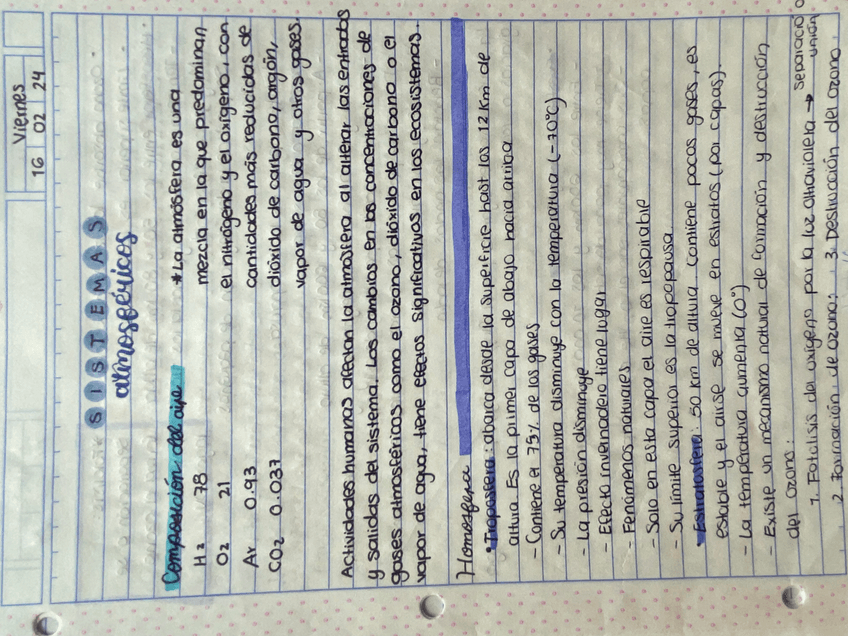 Viernes
16 02 24
SISTEMAS
atmosféricos
Composición del aire
H2 78
O2 21
Ar 0.93
CO2 0.037
*La atmósfera es una
mezcla en la que predominan
el nitrógeno y el oxígeno, con
cantidades más reducidas de
dióxido de carbono, argón,
vapor de agua y otros gases.
Actividades humanas afectan la atmosfera al alterar las entradas
y salidas del sistema. Los cambios en las concentraciones de
gases atmosféricos como el ozono, dióxido de carbono o el
vapor de agua, tiene efectos significativos en los ecosistemas.
Homosfera
•Troposfera: abarca desde la superficie hast los 12 Km de
altura Es la primer capa de abajo hacia arriba
- Contiene el 75% de los gases
- Su temperatura disminuye con la temperatura (-70°C)
- La presión disminuye
- Efecto invernadero tiene lugar
- Fenómenos naturales
- Solo en esta capa el aire es respirable
- Su límite superior es la tropopausa
•Estratosfera: 50 km de altura Contiene pocos gases, es
estable y el airse se mueve en estratos (por capas).
- La temperatura aumenta (0°)
- Existe un mecanismo natural de formación y destrucción
del ozono:
1. Fotolisis del oxígeno por la luz ultravioleta → separació
unión
2. Formación de ozono: 3. Destrucción del ozono: